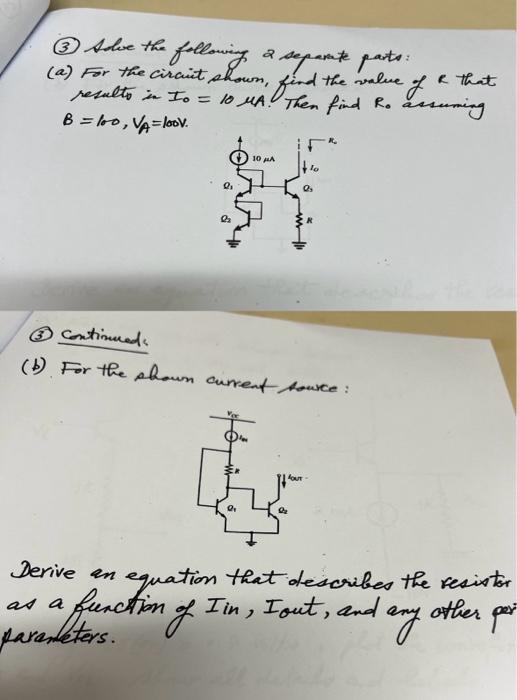 ③ Solve the following 2 separate parts:
(a) For the circuit, shown, find the value of R that
results in Io = 10 μA! Then find Ro assuming
B = 100, VA = 100V.
Ro
10 μA
Io
Q1
Q3
Q2
R
③ Continued:
(b) For the shown current source:
Vcc
IIN
R
IOUT
Q1
Q2
Derive an equation that describes the resistor
as a function of Iin, Iout, and any other per
parameters.